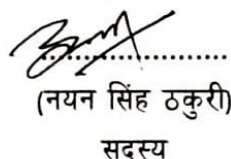 ....................
(नयन सिंह ठकुरी)
सदस्य